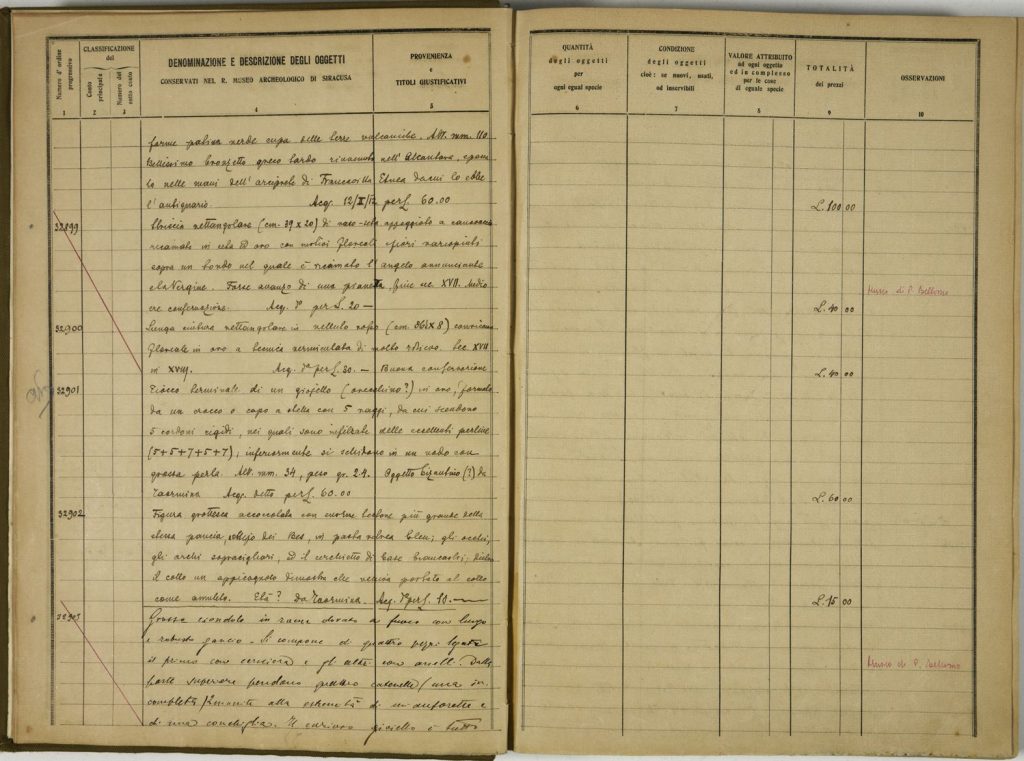 Numero d'ordine progressivo
CLASSIFICAZIONE del
Conto principale
Numero del sotto conto
DENOMINAZIONE E DESCRIZIONE DEGLI OGGETTI
CONSERVATI NEL R. MUSEO ARCHEOLOGICO DI SIRACUSA
PROVENIENZA
e
TITOLI GIUSTIFICATIVI
1 2 3 4 5
forme patina verde cupa delle terre vulcaniche. Alt. mm. 110
Bellissimo bronzetto greco tardo rinvenuto nell'Alcantara,
to nelle mani dell'arciprete di Francavilla da cui lo ebbe
l'antiquario. Acq. per £. 60.00
32899 Striscia rettangolare (cm. 39 x 20) di appoggiato a canovaccio
ricamato in seta ed oro con motivi floreali fiori variopinti
sopra un tondo nel quale è ricamato l'angelo annunciante
e la Vergine. Forse avanzo di una pianeta, fine sec. XVII. Medio
cre conservazione. Acq. per £. 20 —
32900 Lunga cintura rettangolare in velluto rosso (cm. x 8) con
floreale in oro a tecnica vermiculata di molto rilievo. Sec. XVII
in XVIII. Acq. per £. 30. — Buona conservazione
32901 Fiocco terminale di un gioiello (orecchino?) in oro, formato
da un crocco o capo a stella con 5 raggi, da cui scendono
5 cordoni rigidi, nei quali sono infilzate delle eccellenti perline
(5+5+7+5+7), inferiormente si in un nodo con
grossa perla. Alt. mm. 34, peso gr. 2.4. Oggetto bizantino (?) da
Taormina Acq. detto per £. 60.00
32902 Figura grottesca accoccolata con enorme testone più grande della
stessa pancia, dei Bes, in pasta vitrea bleu; gli occhi,
gli archi sopracigliari, ed il cerchietto di base biancastri; dietro
il collo un appiccagnolo dimostra che veniva portato al collo
come amuleto. Età? Da Taormina. Acq. per £. 10. —
32903 Grosso ciondolo in rame dorato a fuoco con lungo
e robusto gancio. Si compone di quattro pezzi legati
il primo con cerniera e gli altri con anelli. Dalla
parte superiore pendono quattro catenelle (una in
completa) alla estremità di e
di una conchiglia. Il curioso gioiello è tutto
QUANTITÀ
degli oggetti
per
ogni egual specie
CONDIZIONE
degli oggetti
cioè: se nuovi, usati,
od inservibili
VALORE ATTRIBUITO
ad ogni oggetto
ed in complesso
per le cose
di eguale specie
TOTALITÀ
dei prezzi
OSSERVAZIONI
6 7 8 9 10
£. 100 00
Museo di P. Bellomo
£. 40 00
£. 40 00
£. 60 00
£. 15 00
Museo di P. Bellomo